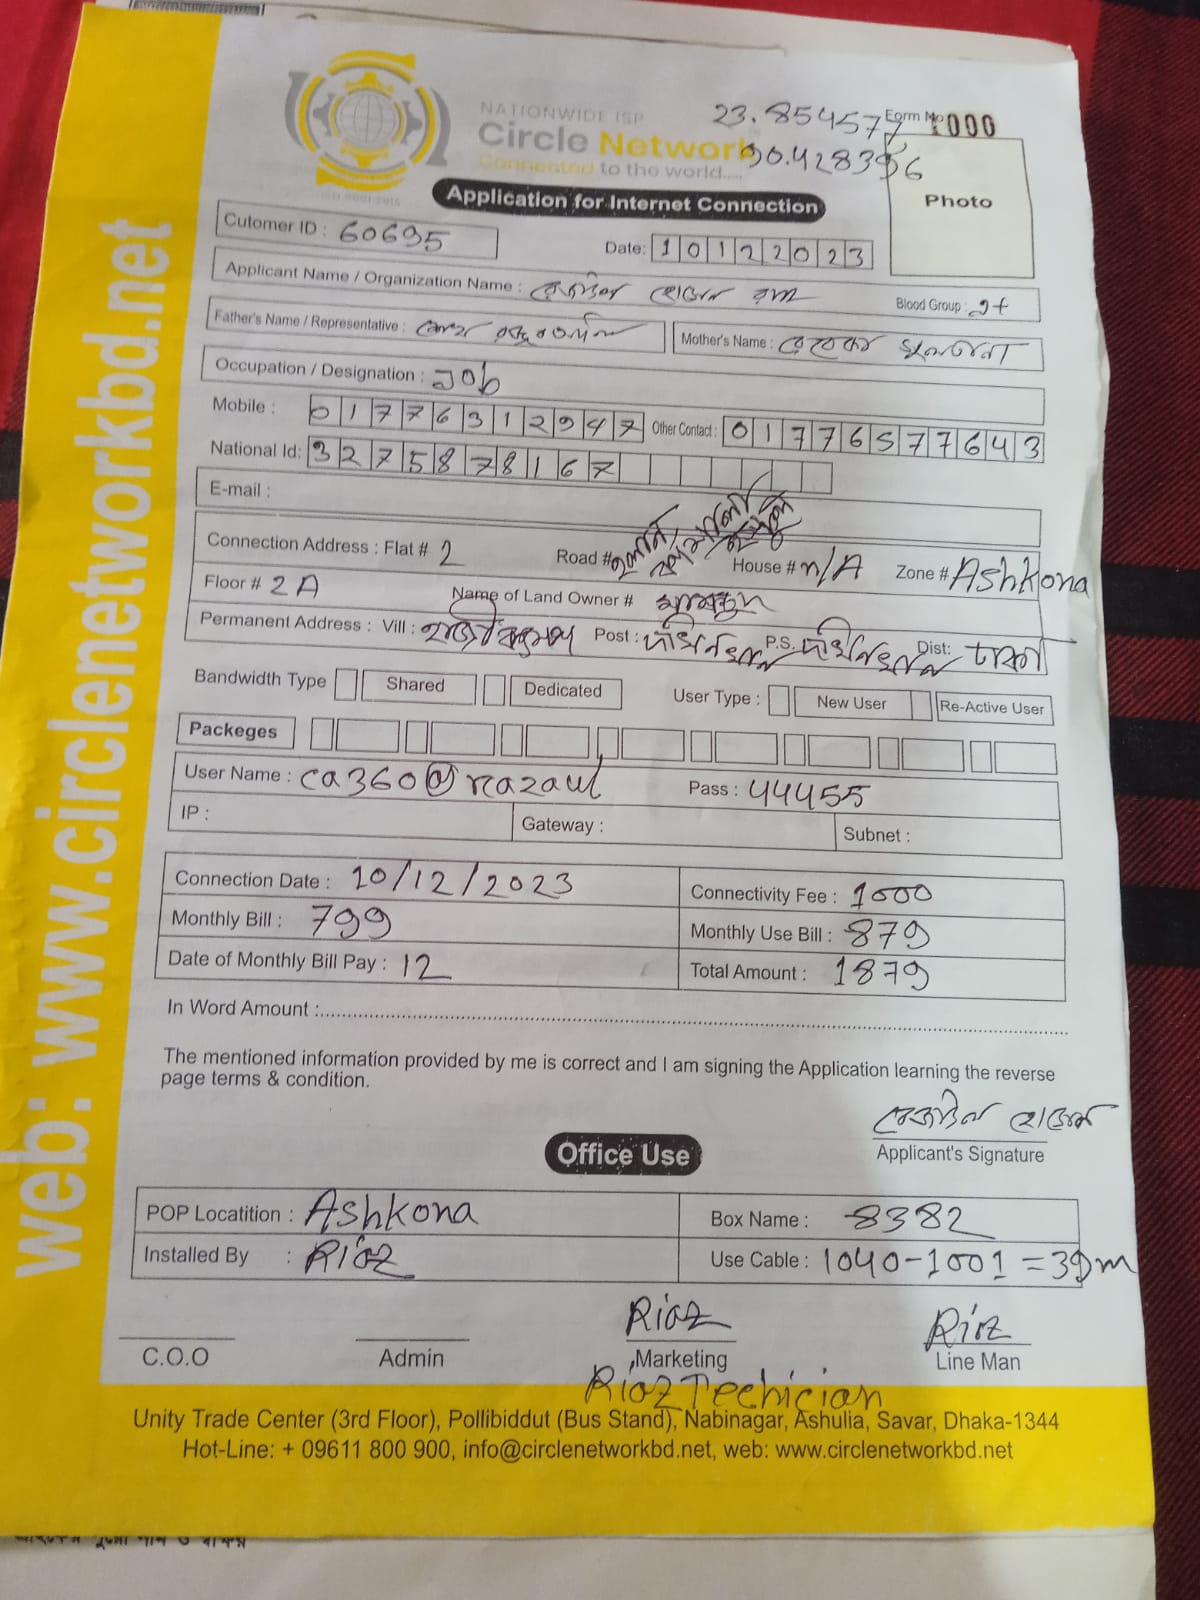 NATIONWIDE ISP
Circle Network
Connected to the world....
23.854577
90.428396
Form No 1000
Photo
Application for Internet Connection
Cutomer ID : 60695
Date: 10122023
Applicant Name / Organization Name : রেজাউল হোসেন
Blood Group :
Father's Name / Representative :
Mother's Name :
Occupation / Designation : Job
Mobile : 01776312947 Other Contact : 01776577643
National Id: 3275878167
E-mail :
Connection Address : Flat # 2 Road # House # n/A Zone # Ashkona
Floor # 2A Name of Land Owner #
Permanent Address : Vill : Post : দক্ষিনখান P.S. দক্ষিনখান Dist: ঢাকা
Bandwidth Type Shared Dedicated User Type : New User Re-Active User
Packeges
User Name : ca360@razaul Pass : 44455
IP : Gateway : Subnet :
Connection Date : 10/12/2023 Connectivity Fee : 1000
Monthly Bill : 799 Monthly Use Bill : 879
Date of Monthly Bill Pay : 12 Total Amount : 1879
In Word Amount :
The mentioned information provided by me is correct and I am signing the Application learning the reverse
page terms & condition.
রেজাউল হোসেন
Applicant's Signature
Office Use
POP Locatition : Ashkona Box Name : 8382
Installed By : Riaz Use Cable : 1040-1001 = 39m
Riaz Riaz
C.O.O Admin Marketing Line Man
Riaz Techician
Unity Trade Center (3rd Floor), Pollibiddut (Bus Stand), Nabinagar, Ashulia, Savar, Dhaka-1344
Hot-Line: + 09611 800 900, info@circlenetworkbd.net, web: www.circlenetworkbd.net
web: www.circlenetworkbd.net